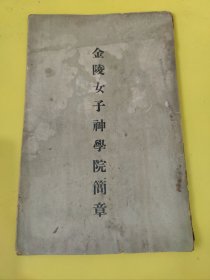 金陵女子神學院簡章